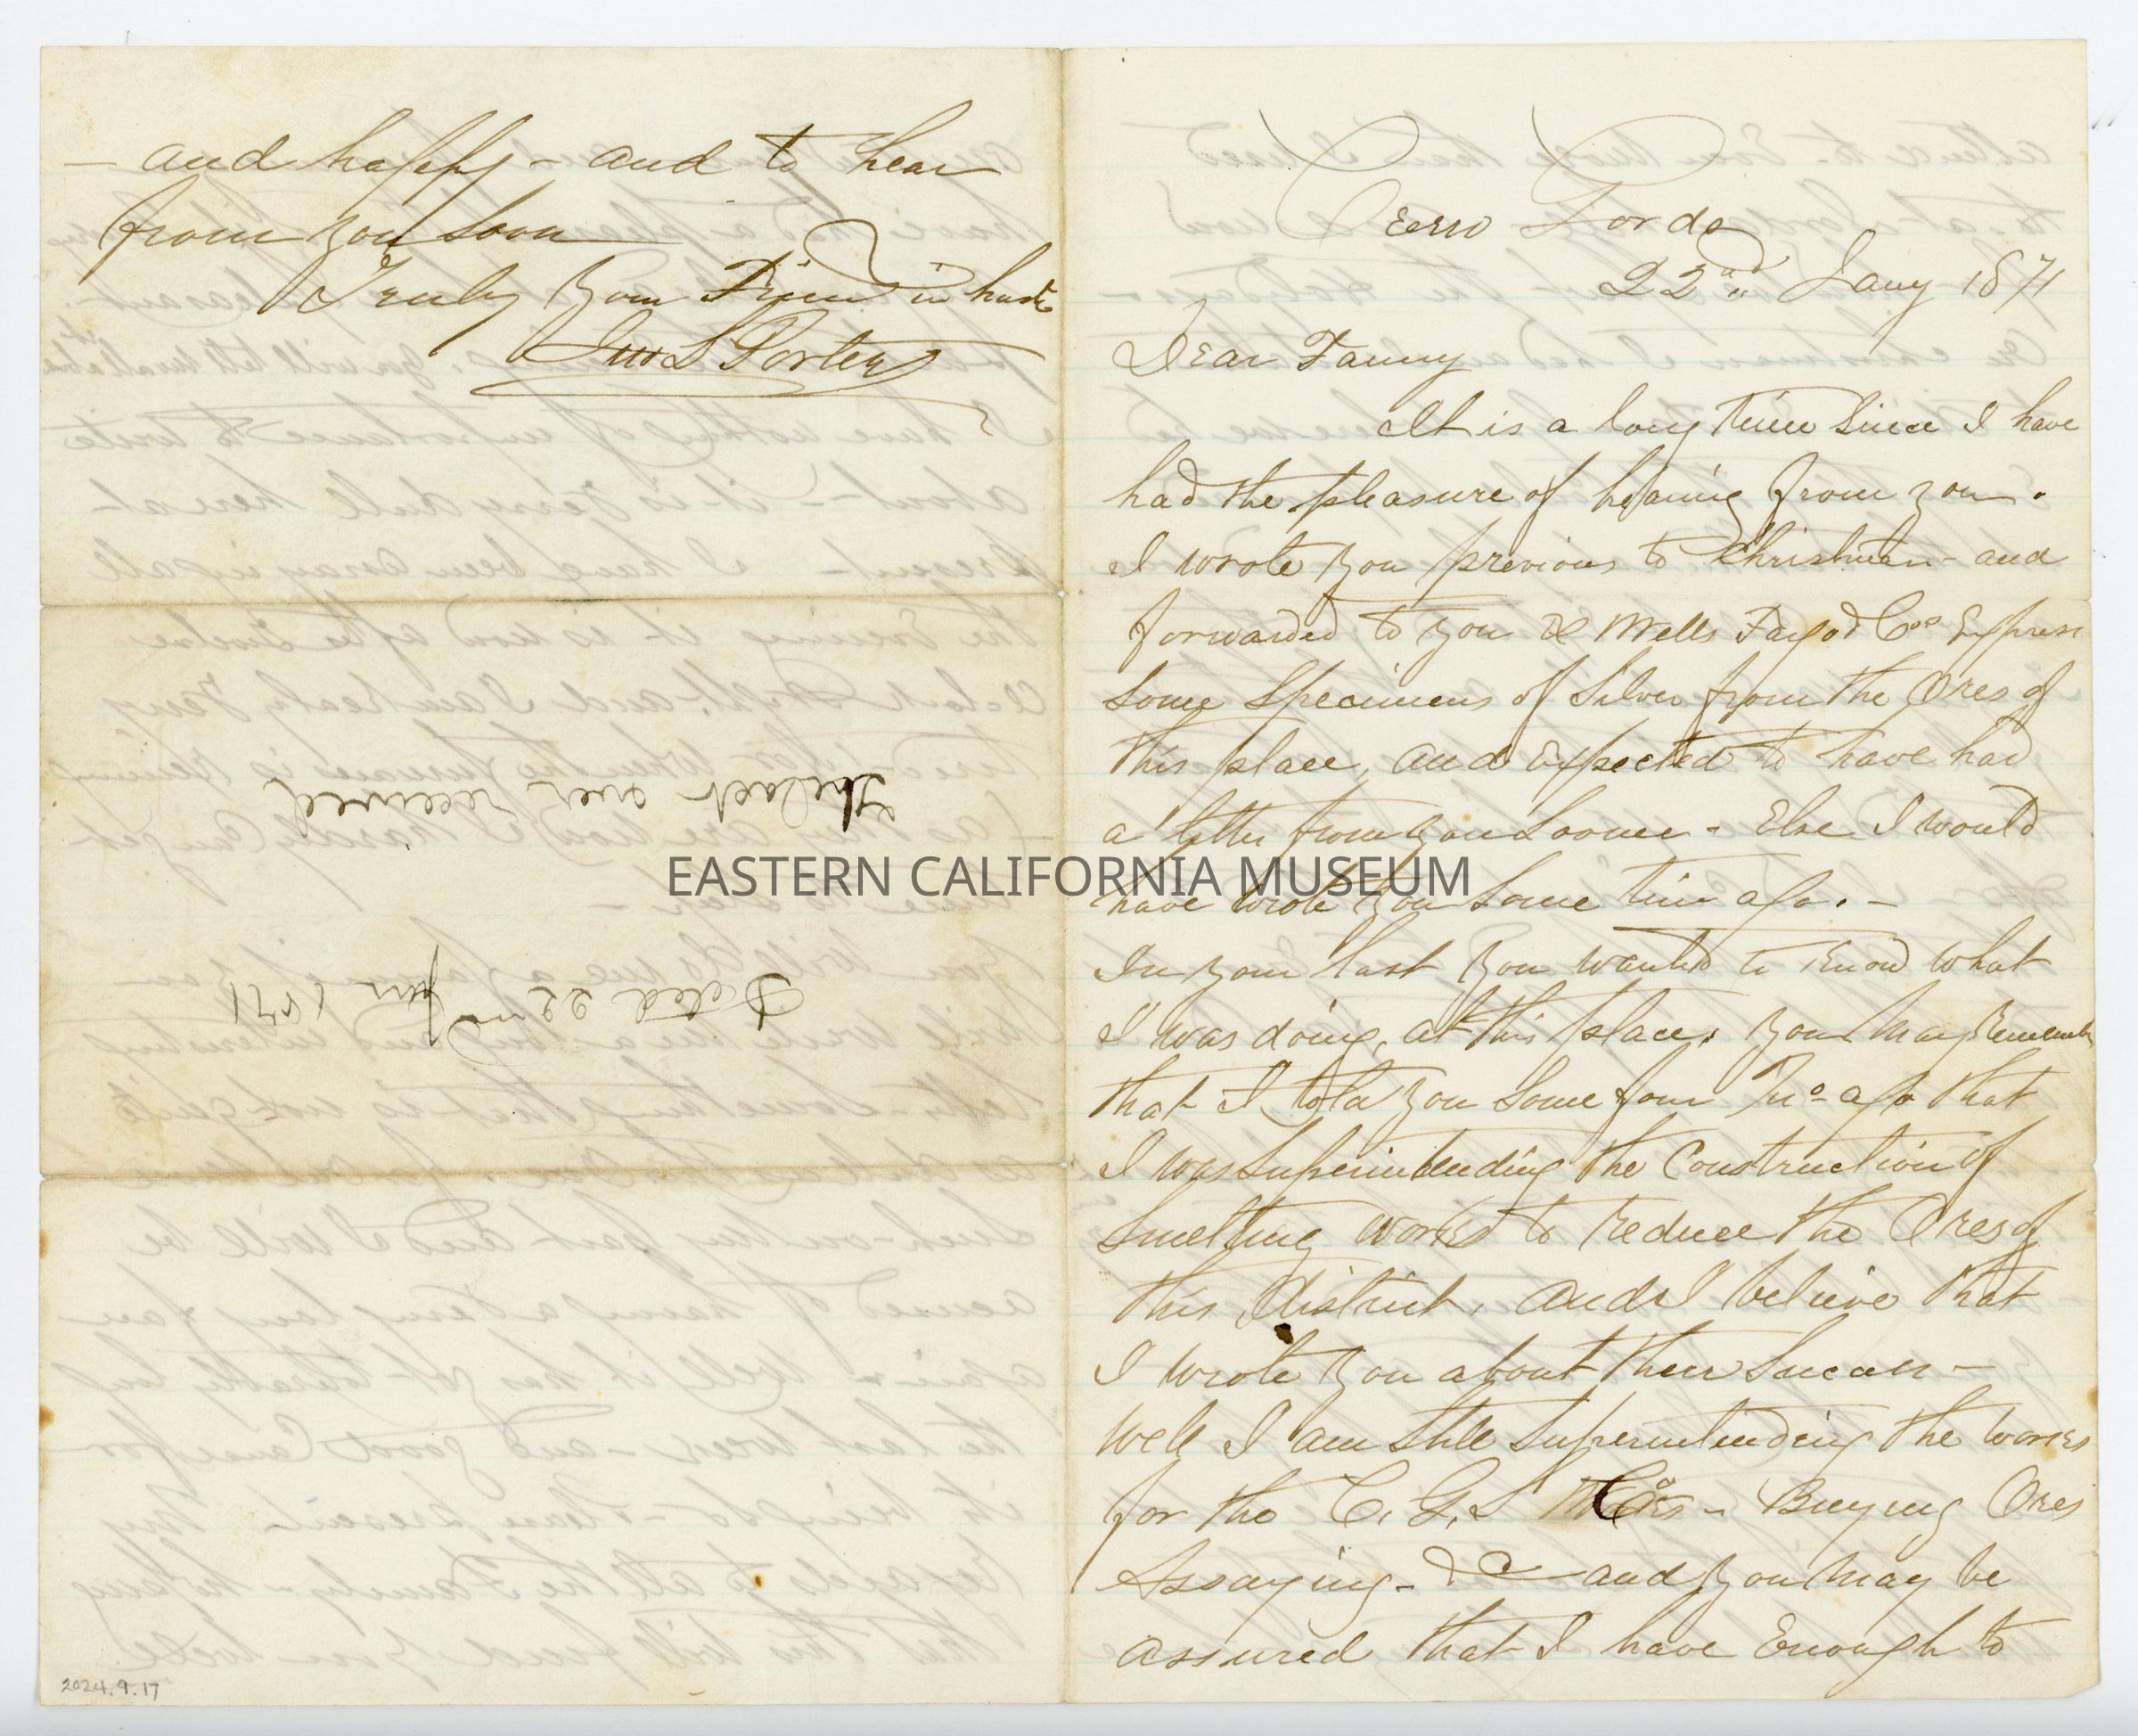 Cerro Gordo
22nd Jany 1871
Dear Fanny
It is a long time since I have
had the pleasure of hearing from you.
I wrote you previous to Christmas and
forwarded to you Wells Fargo & Cos Express
some specimens of Silver from the Ores of
this place, and expected to have had
a letter from you sooner - Else I would
have wrote you some time ago. -
In your last you wanted to know what
I was doing, at this place. you may Rememb
that I told you some four Mo- ago that
I was superintending the Construction of
smelting works to reduce the Ores of
this District. and I believe that
I wrote you about their Success -
well I am still superintending the works
for the C. G. S - Buying Ores
Assaying - &c - and you may be
assured that I have Enough to
- and happy - and to hear
from you soon
Truly your Friend in haste
Jno S Porter
The last ever received
Dated 22nd Jan 1871
2024.9.17
EASTERN CALIFORNIA MUSEUM